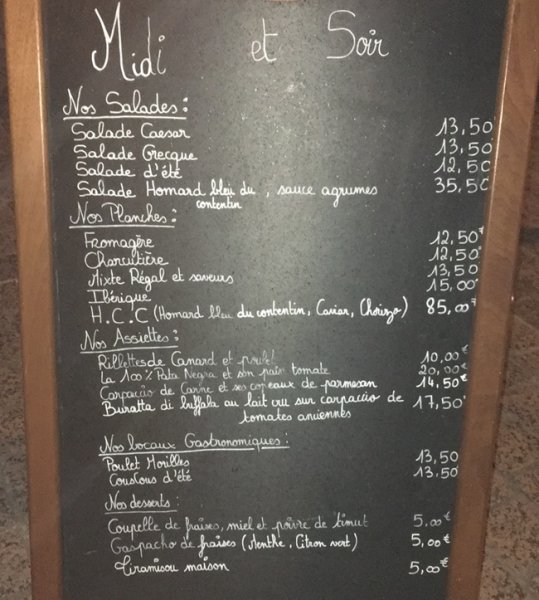 Midi et Soir
Nos Salades :
Salade Caesar 13,50
Salade Grecque 13,50
Salade d'été 12,50
Salade Homard bleu du contentin, sauce agrumes 35,50
Nos Planches :
Fromagère 12,50€
Charcutière 12,50
Mixte Régal et saveurs 13,50
Ibérique 15,00
H.C.C (Homard bleu du contentin, Caviar, Chorizo) 85,00€
Nos Assiettes :
Rillettes de Canard et poulet 10,00€
La 100% Pata Negra et son pain tomate 20,00€
Carpaccio de Canne et ses copeaux de parmesan 14,50€
Buratta di buffala au lait cru sur carpaccio de 17,50
tomates anciennes
Nos bocaux Gastronomiques :
Poulet Morilles 13,50
Couscous d'été 13,50
Nos desserts :
Coupelle de fraises, miel et poivre de timut 5,00€
Gaspacho de fraises (Menthe, Citron vert) 5,00€
Tiramisou maison 5,00€